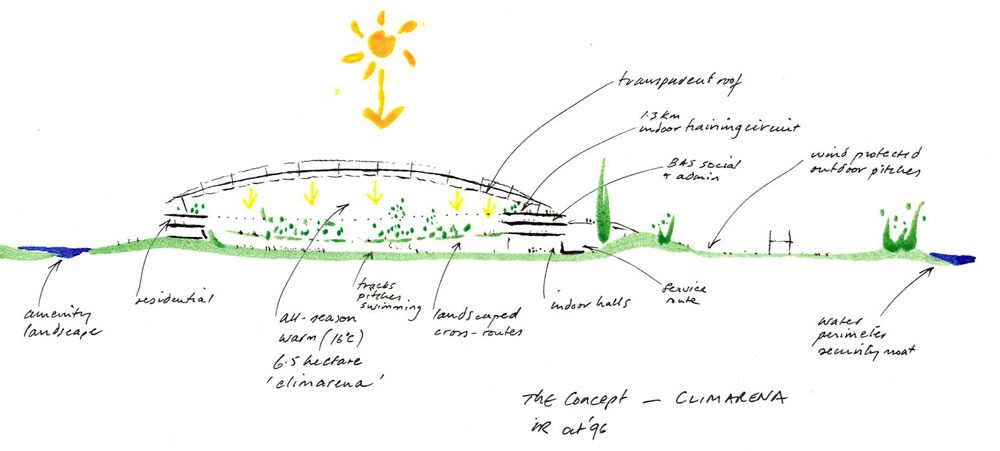 transparent roof
1.3 km
indoor training circuit
BAS social
+ admin
wind protected
outdoor pitches
amenity
landscape
residential
all-season
warm (16°C)
6.5 hectare
'climarena'
tracks
pitches
swimming
landscaped
cross-routes
indoor halls
service
route
water
perimeter
security moat
THE CONCEPT — CLIMARENA
oct '96